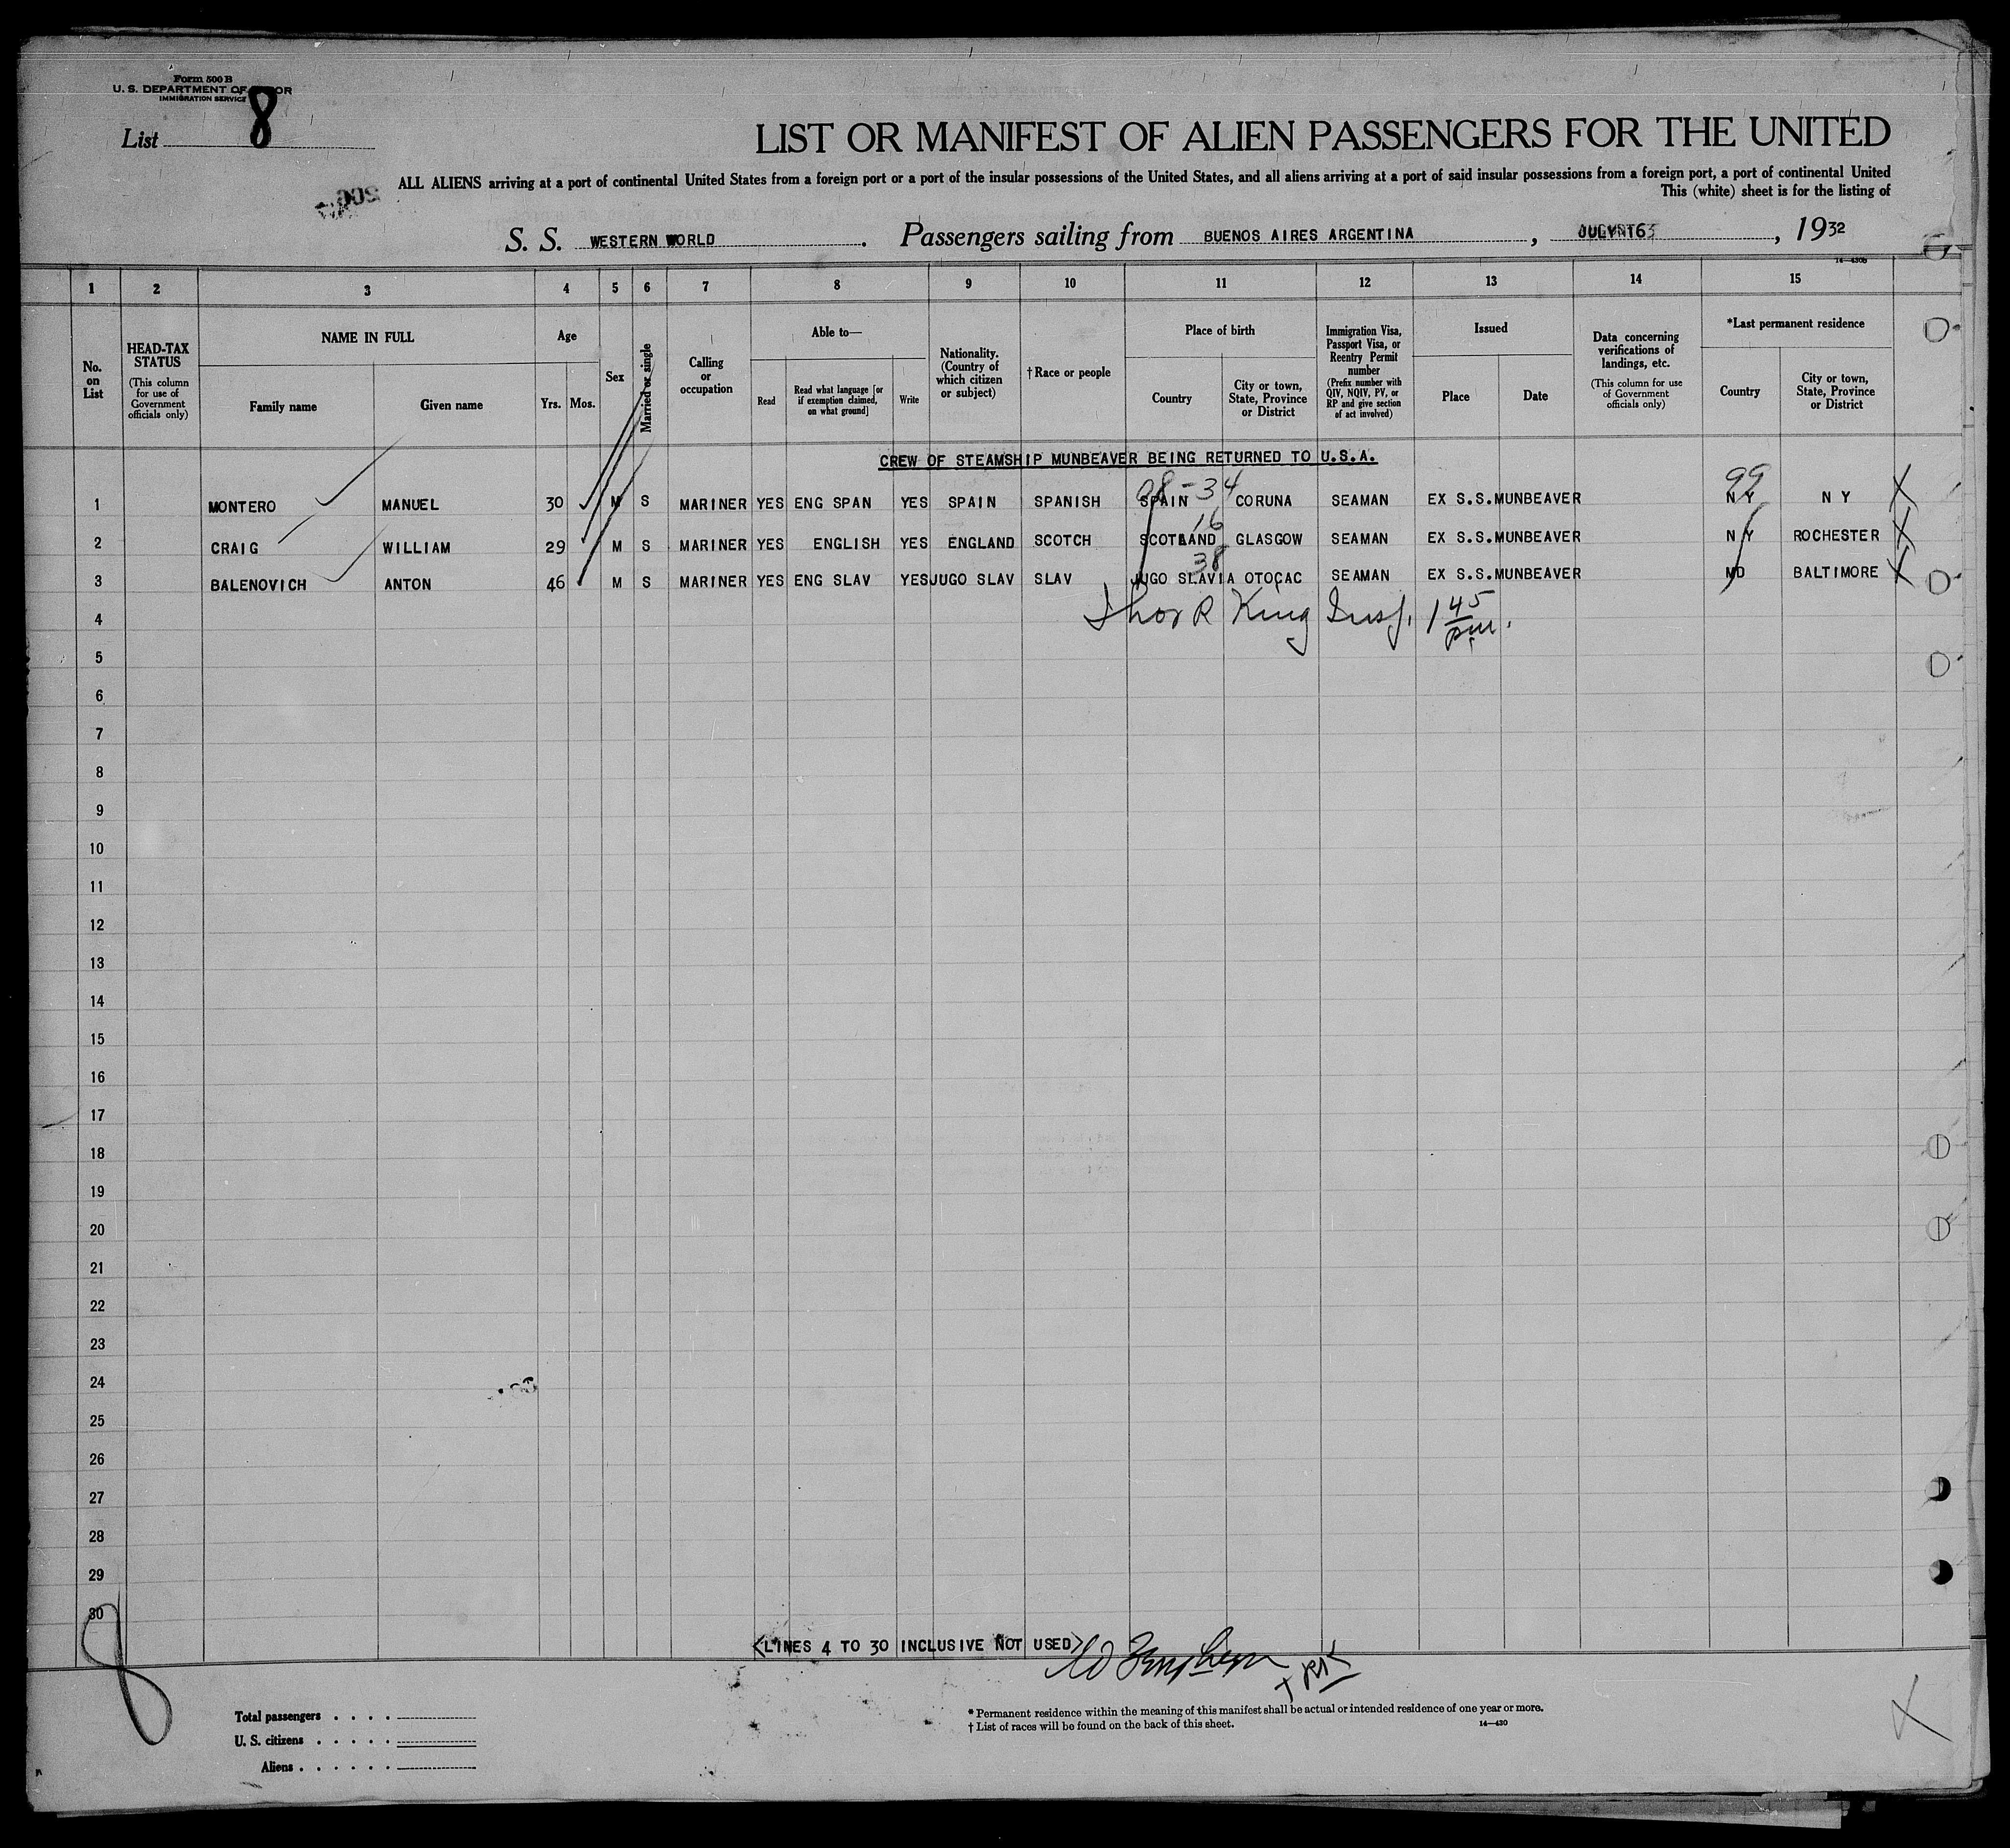 Form 500 B
U. S. DEPARTMENT OF
IMMIGRATION SERVICE
List 8
LIST OR MANIFEST OF ALIEN PASSENGERS FOR THE UNITED
ALL ALIENS arriving at a port of continental United States from a foreign port or a port of the insular possessions of the United States, and all aliens arriving at a port of said insular possessions from a foreign port, a port of continental United
This (white) sheet is for the listing of
S. S. WESTERN WORLD . Passengers sailing from BUENOS AIRES ARGENTINA , , 1932
14—430b
1 2 3 4 5 6 7 8 9 10 11 12 13 14 15
No. on List
HEAD-TAX STATUS (This column for use of Government officials only)
NAME IN FULL
Family name
Given name
Age
Yrs. Mos.
Sex
Married or single
Calling or occupation
Able to—
Read
Read what language [or if exemption claimed, on what ground]
Write
Nationality. (Country of which citizen or subject)
† Race or people
Place of birth
Country
City or town, State, Province or District
Immigration Visa, Passport Visa, or Reentry Permit number (Prefix number with QIV, NQIV, PV, or RP and give section of act involved)
Issued
Place
Date
Data concerning verifications of landings, etc. (This column for use of Government officials only)
*Last permanent residence
Country
City or town, State, Province or District
CREW OF STEAMSHIP MUNBEAVER BEING RETURNED TO U.S.A.
99
1 MONTERO MANUEL 30 M S MARINER YES ENG SPAN YES SPAIN SPANISH SPAIN CORUNA SEAMAN EX S.S.MUNBEAVER N Y N Y
16
2 CRAIG WILLIAM 29 M S MARINER YES ENGLISH YES ENGLAND SCOTCH SCOTLAND GLASGOW SEAMAN EX S.S.MUNBEAVER N Y ROCHESTER
38
3 BALENOVICH ANTON 46 M S MARINER YES ENG SLAV YES JUGO SLAV SLAV JUGO SLAVIA OTOCAC SEAMAN EX S.S.MUNBEAVER MD BALTIMORE
4 R King Insp. 1 45 pm.
5
6
7
8
9
10
11
12
13
14
15
16
17
18
19
20
21
22
23
24
25
26
27
28
29
30
<LINES 4 TO 30 INCLUSIVE NOT USED>
8
Total passengers . . . .
U. S. citizens . . . . .
Aliens . . . . . .
* Permanent residence within the meaning of this manifest shall be actual or intended residence of one year or more.
† List of races will be found on the back of this sheet.
14—430